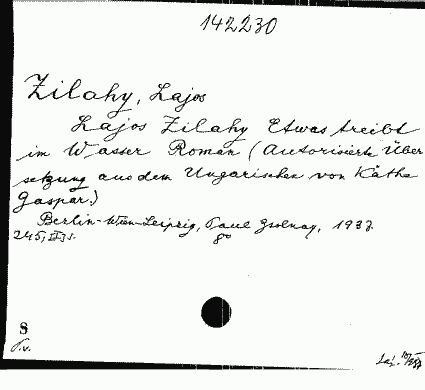 142230
Zilahy, Lajos
Lajos Zilahy Etwas treibt
im Wasser Roman (Autorisierte Über
setzung aus dem Ungarischen von Käthe
Gaspar.)
Berlin-Wien-Leipzig, Paul Zsolnay, 1937.
245, [1] s. 8°
8